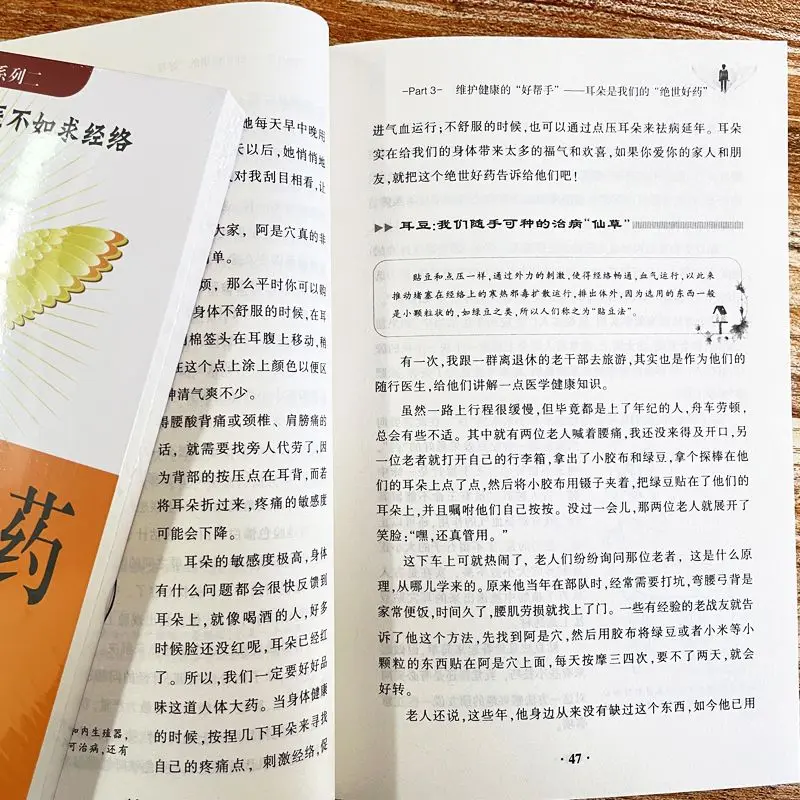 系列二
不如求经络
药
和内生殖器,
可治病,还有
她每天早中晚用
天以后,她悄悄地
对我刮目相看,让
大家,阿是穴真的非
单。
烦,那么平时你可以购
身体不舒服的时候,在耳
棉签头在耳腹上移动,稍
在这个点上涂上颜色以便区
神清气爽不少。
得腰酸背痛或颈椎、肩膀痛的
话,就需要找旁人代劳了,因
为背部的按压点在耳背,而若
将耳朵折过来,疼痛的敏感度
可能会下降。
耳朵的敏感度极高,身体
有什么问题都会很快反馈到
耳朵上,就像喝酒的人,好多
时候脸还没红呢,耳朵已经红
了。所以,我们一定要好好品
味这道人体大药。当身体健康
的时候,按捏几下耳朵来寻找
自己的疼痛点,刺激经络,促
-Part 3- 维护健康的“好帮手”——耳朵是我们的“绝世好药”
进气血运行;不舒服的时候,也可以通过点压耳朵来祛病延年。耳朵
实在给我们的身体带来太多的福气和欢喜,如果你爱你的家人和朋
友,就把这个绝世好药告诉给他们吧!
▶▶ 耳豆:我们随手可种的治病“仙草”
贴豆和点压一样,通过外力的刺激,使得经络畅通,血气运行,以此来
推动堵塞在经络上的寒热邪毒扩散运行,排出体外,因为选用的东西一般
是小颗粒状的,如绿豆之类,所以人们称之为“贴豆法”。
有一次,我跟一群离退休的老干部去旅游,其实也是作为他们的
随行医生,给他们讲解一点医学健康知识。
虽然一路上行程很缓慢,但毕竟都是上了年纪的人,舟车劳顿,
总会有些不适。其中就有两位老人喊着腰痛,我还没来得及开口,另
一位老者就打开自己的行李箱,拿出了小胶布和绿豆,拿个探棒在他
们的耳朵上点了点,然后将小胶布用镊子夹着,把绿豆贴在了他们的
耳朵上,并且嘱咐他们自己按按。没过一会儿,那两位老人就展开了
笑脸:“嘿,还真管用。”
这下车上可就热闹了,老人们纷纷询问那位老者,这是什么原
理,从哪儿学来的。原来他当年在部队时,经常需要打坑,弯腰弓背是
家常便饭,时间久了,腰肌劳损就找上了门。一些有经验的老战友就告
诉了他这个方法,先找到阿是穴,然后用胶布将绿豆或者小米等小
颗粒的东西贴在阿是穴上面,每天按摩三四次,要不了两天,就会
好转。
老人还说,这些年,他身边从来没有缺过这个东西,如今他已用
·47·